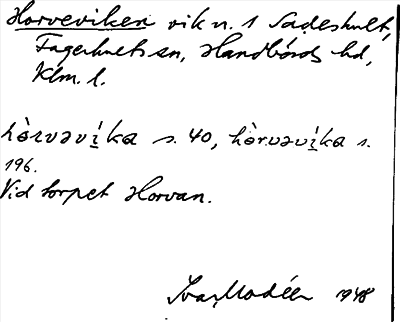 Horveviken vik n. 1 Sadeshult,
Fagerhults sn, Handbörds hd,
Klm. l.
hòrvəvi̍ka s. 40, hòrvəvi̍ka s.
196.
Vid torpet Horvan.
Ivar Modéer 1948